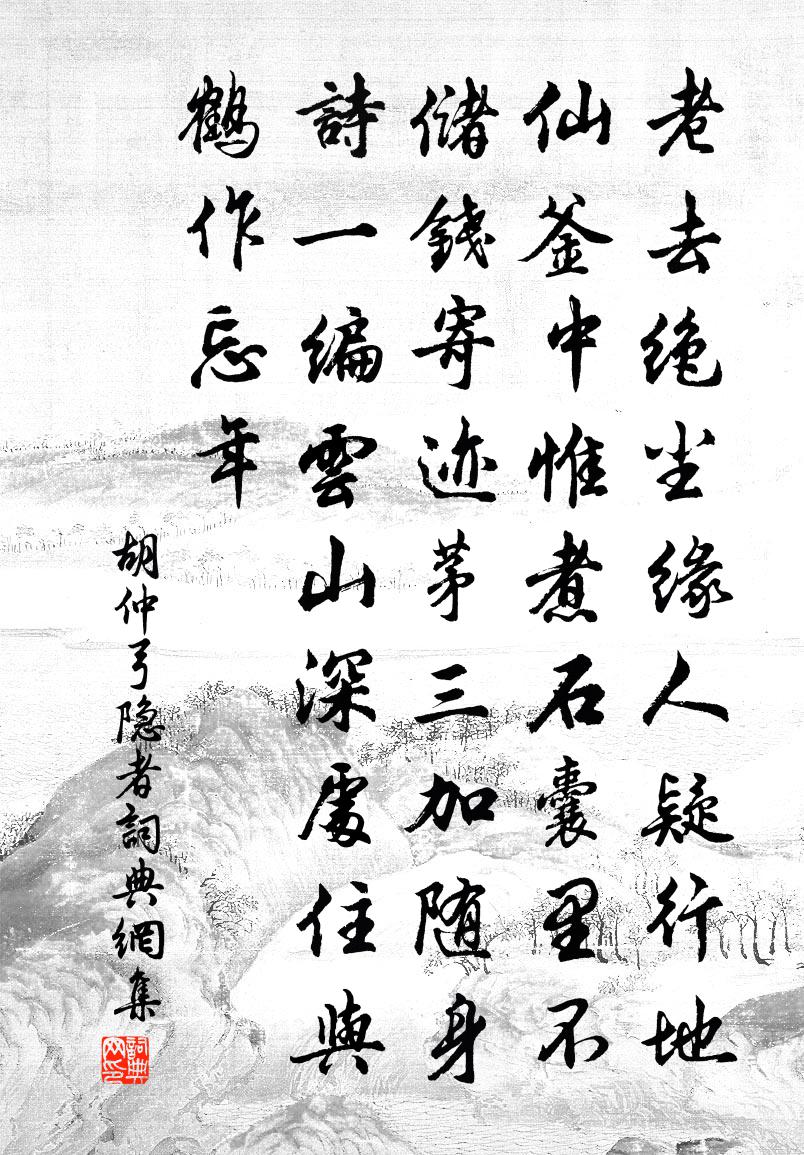 老去绝尘缘人疑行地
仙釜中惟煮石囊里不
储錢寄迹茅三加随身
詩一编雲山深處住與
鶴作忘年
胡仲弓隐者詞典網集
詞典
网印